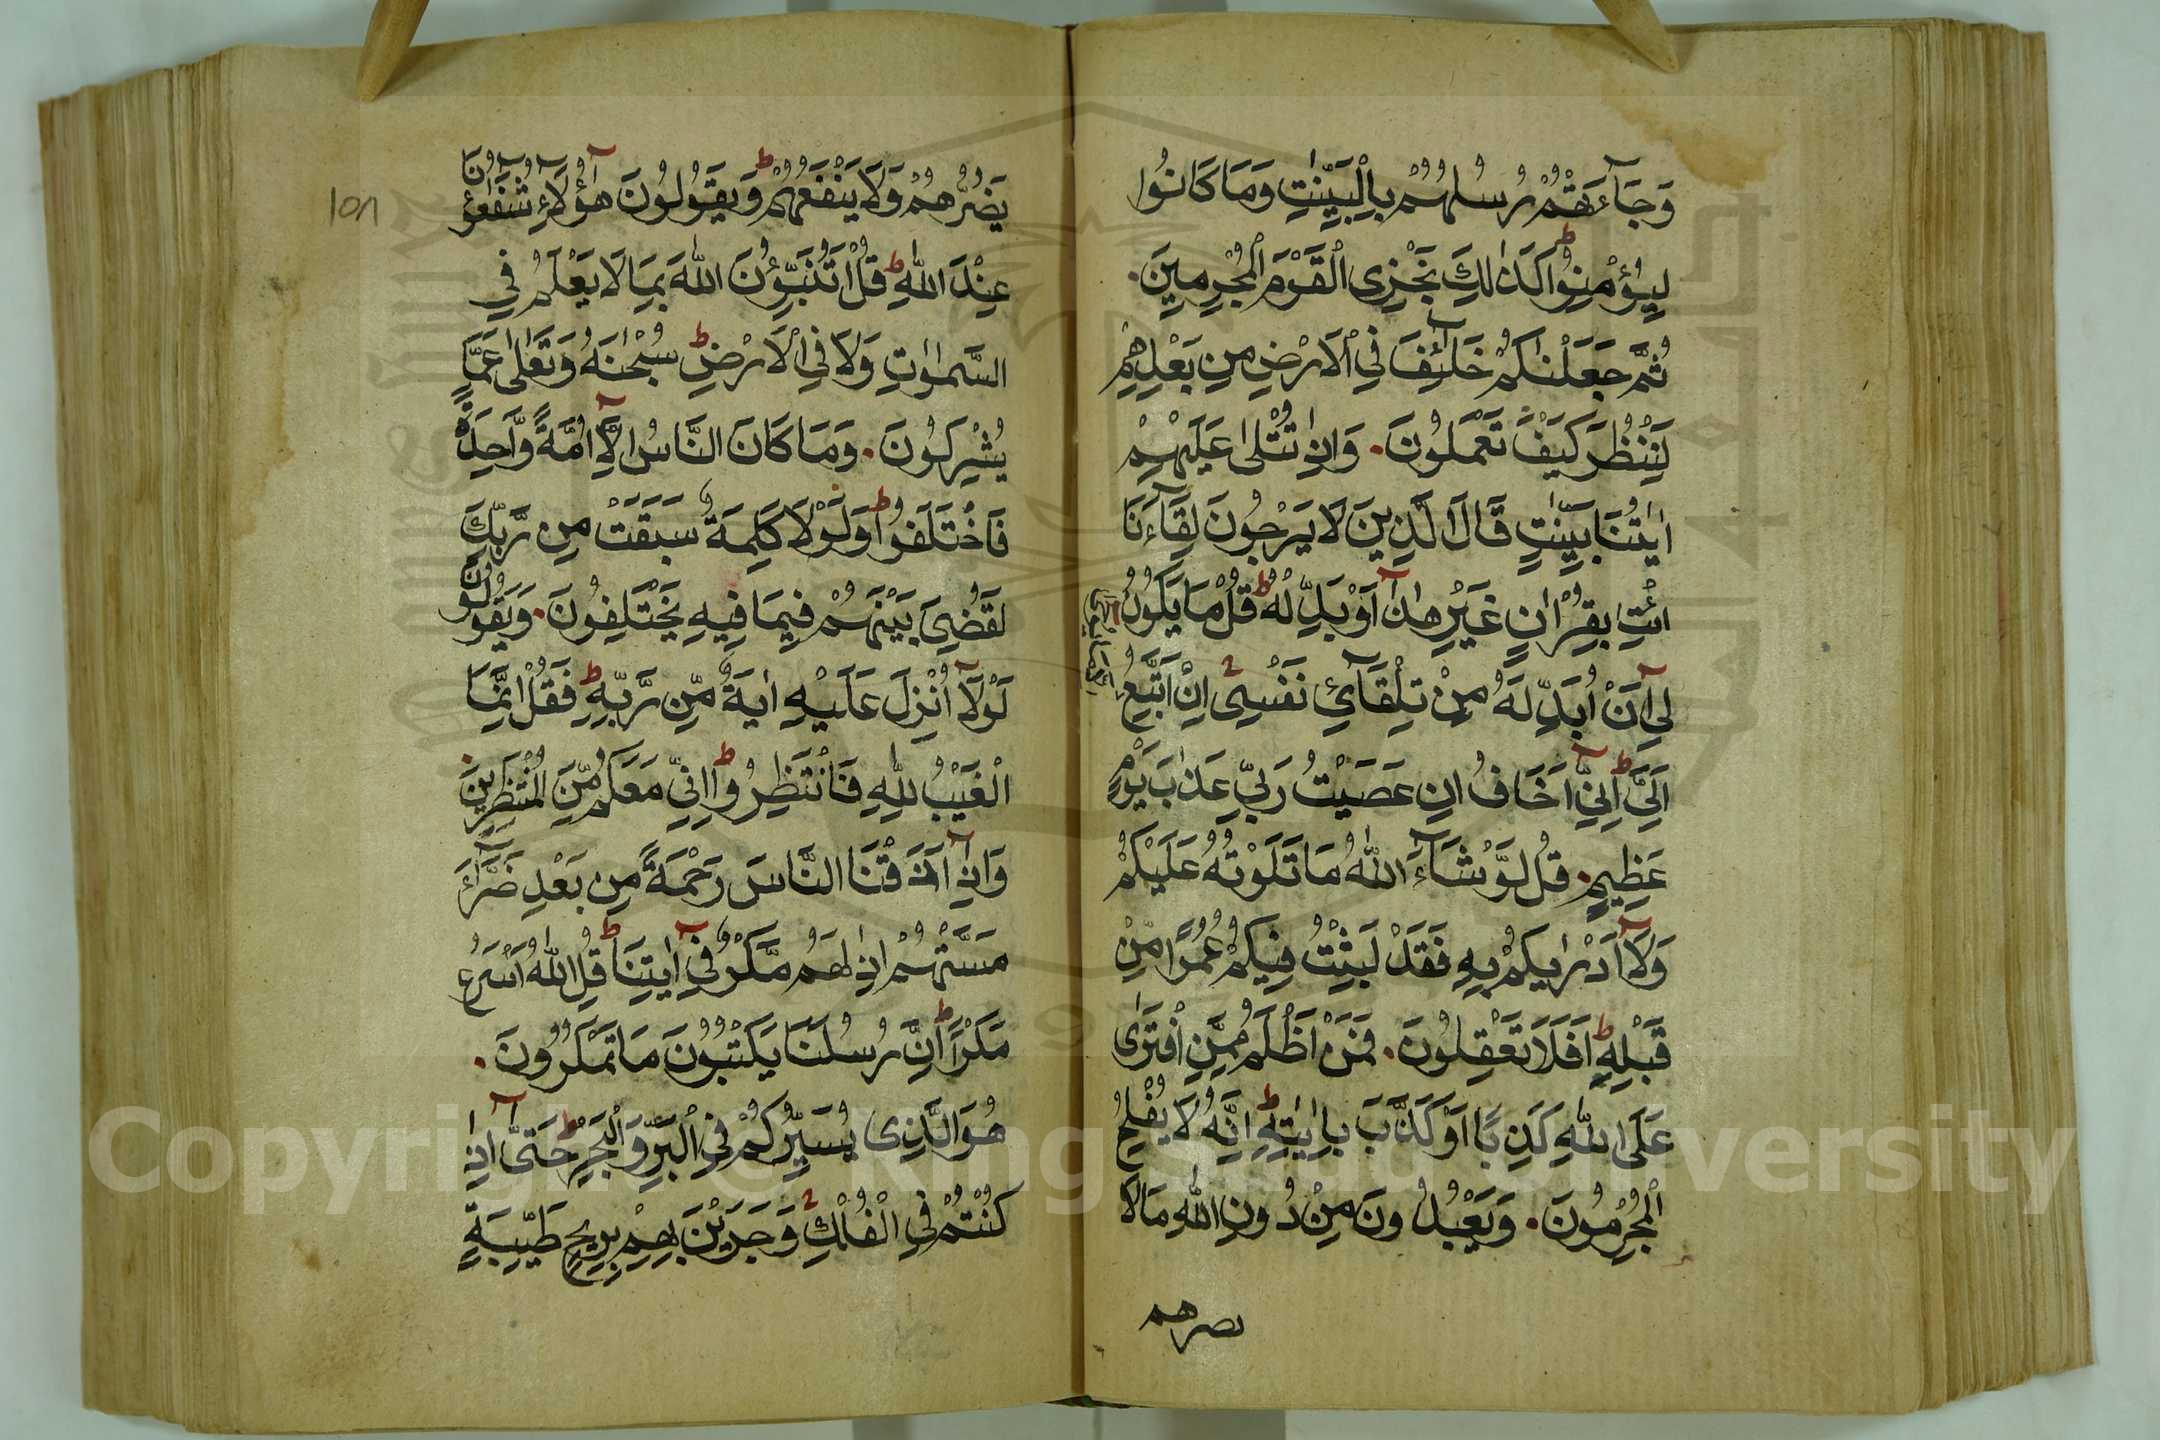 وَجَآءَتْهُمْ رُسُلُهُمْ بِالْبَيِّنٰتِ وَمَا كَانُوْا
لِيُؤْمِنُوْا ط كَذٰلِكَ نَجْزِى الْقَوْمَ الْمُجْرِمِينَ
ثُمَّ جَعَلْنٰكُمْ خَلٰٓئِفَ فِي الْاَرْضِ مِنۢ بَعْدِهِمْ
لِنَنْظُرَ كَيْفَ تَعْمَلُونَ وَاِذَا تُتْلٰى عَلَيْهِمْ
اٰيٰتُنَا بَيِّنٰتٍ قَالَ الَّذِينَ لَا يَرْجُونَ لِقَآءَنَا
ائْتِ بِقُرْاٰنٍ غَيْرِ هٰذَآ اَوْ بَدِّلْهُ ط قُلْ مَا يَكُوْنُ
لِيٓ اَنْ اُبَدِّلَهٗ مِنْ تِلْقَآئِ نَفْسِى اِنْ اَتَّبِعُ
اِلَيَّ ط اِنِّيٓ اَخَافُ اِنْ عَصَيْتُ رَبِّي عَذَابَ يَوْمٍ
عَظِيمٍ قُل لَّوْ شَآءَ اللّٰهُ مَا تَلَوْتُهٗ عَلَيْكُمْ
وَلَآ اَدْرٰيكُمْ بِهٖ فَقَدْ لَبِثْتُ فِيكُمْ عُمُرًا مِّنْ
قَبْلِهٖ ط اَفَلَا تَعْقِلُونَ فَمَنْ اَظْلَمُ مِمَّنِ افْتَرٰى
عَلَى اللّٰهِ كَذِبًا اَوْ كَذَّبَ بِاٰيٰتِهٖ ط اِنَّهٗ لَا يُفْلِحُ
الْمُجْرِمُونَ وَيَعْبُدُونَ مِنْ دُونِ اللّٰهِ مَا لَا
يضرهم
١٥٨
يَضُرُّهُمْ وَلَا يَنْفَعُهُمْ ط وَيَقُولُونَ هٰٓؤُلَآءِ شُفَعَآؤُنَا
عِنْدَ اللّٰهِ ط قُلْ اَتُنَبِّؤُنَ اللّٰهَ بِمَا لَا يَعْلَمُ فِي
السَّمٰوٰتِ وَلَا فِي الْاَرْضِ ط سُبْحٰنَهٗ وَتَعٰلٰى عَمَّا
يُشْرِكُونَ وَمَا كَانَ النَّاسُ اِلَّآ اُمَّةً وَّاحِدَةً
فَاخْتَلَفُوا ط وَلَوْلَا كَلِمَةٌ سَبَقَتْ مِن رَّبِّكَ
لَقُضِيَ بَيْنَهُمْ فِيمَا فِيهِ يَخْتَلِفُونَ وَيَقُولُونَ
لَوْلَآ اُنْزِلَ عَلَيْهِ اٰيَةٌ مِّن رَّبِّهٖ ط فَقُلْ اِنَّمَا
الْغَيْبُ لِلّٰهِ فَانْتَظِرُوا ط اِنِّي مَعَكُمْ مِّنَ الْمُنْتَظِرِينَ
وَاِذَآ اَذَقْنَا النَّاسَ رَحْمَةً مِنۢ بَعْدِ ضَرَّآءَ
مَسَّتْهُمْ اِذَا لَهُم مَّكْرٌ فِيٓ اٰيٰتِنَا ط قُلِ اللّٰهُ اَسْرَعُ
مَكْرًا ط اِنَّ رُسُلَنَا يَكْتُبُوْنَ مَا تَمْكُرُوْنَ
هُوَ الَّذِى يُسَيِّرُكُمْ فِي الْبَرِّ وَالْبَحْرِ ط حَتّٰىٓ اِذَا
كُنْتُمْ فِي الْفُلْكِ وَجَرَيْنَ بِهِمْ بِرِيحٍ طَيِّبَةٍ
Copyright © King Saud University